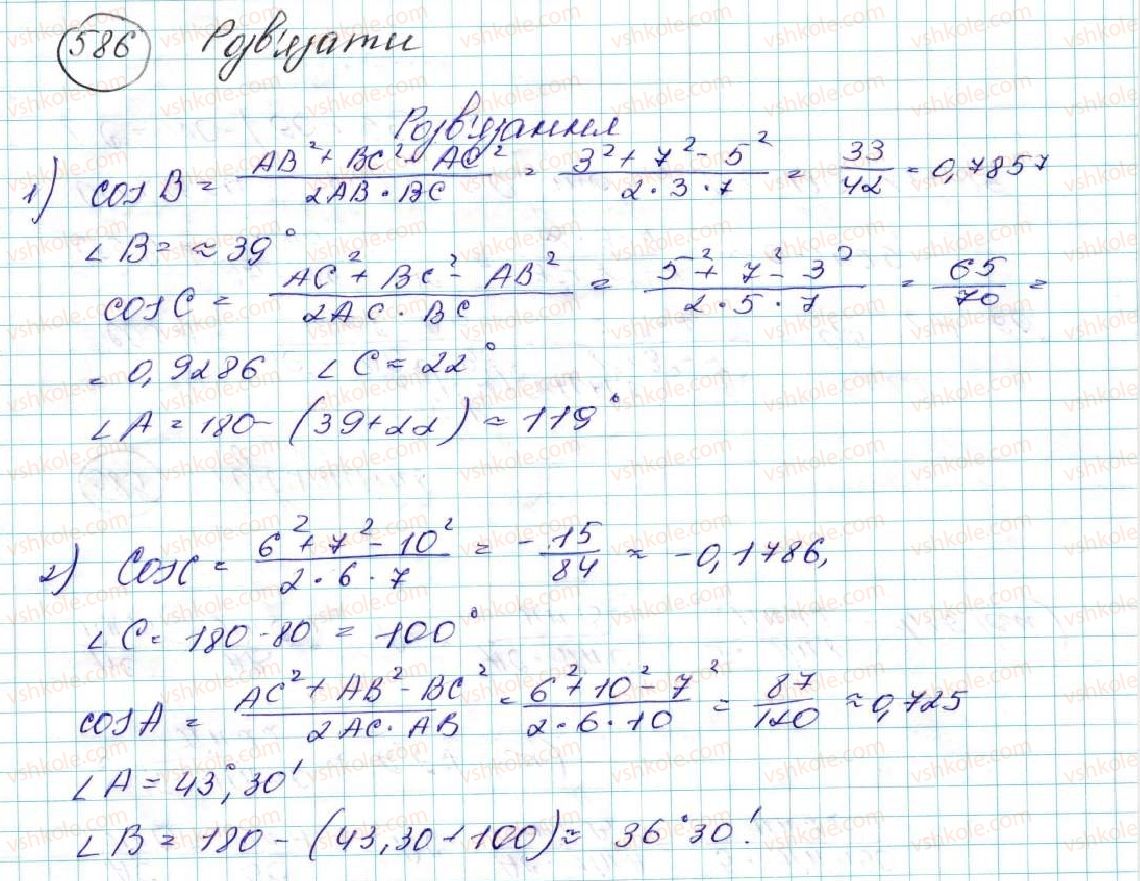 586 Розв'язати
Розв'язання
1) cos B = (AB² + BC² - AC²)/(2AB · BC) = (3² + 7² - 5²)/(2 · 3 · 7) = 33/42 = 0,7857
∠B = ≈ 39°
cos C = (AC² + BC² - AB²)/(2AC · BC) = (5² + 7² - 3²)/(2 · 5 · 7) = 65/70 =
= 0,9286 ∠C = 22°
∠A = 180 - (39+22) = 119°
2) cos C = (6² + 7² - 10²)/(2 · 6 · 7) = -15/84 ≈ -0,1786,
∠C = 180 - 80 = 100°
cos A = (AC² + AB² - BC²)/(2AC · AB) = (6² + 10² - 7²)/(2 · 6 · 10) = 87/120 ≈ 0,725
∠A = 43°,30'
∠B = 180 - (43,30 + 100) = 36°30'
vshkole.com